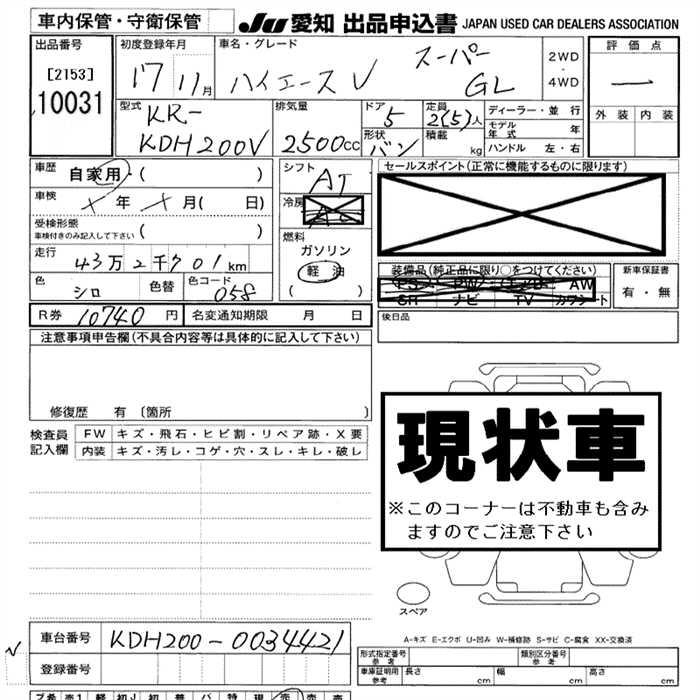 車内保管・守衛保管
JU愛知 出品申込書 JAPAN USED CAR DEALERS ASSOCIATION
出品番号
[2153]
10031
初度登録年月
17 11月
車名・グレード
ハイエース V スーパー GL
2WD
・
4WD
評価点
外装 内装
型式
KR-
KDH200V
排気量
2500cc
ドア
5
形状
バン
定員
2(5)人
積載
kg
ディーラー・並 行
モデル年式 年
ハンドル 左・右
車歴
自家用・( )
車検
年 月( 日)
受検形態
車検付きのみ記入して下さい ( )
走行
43万2千701km
色
シロ
色替
色コード
058
シフト
AT
冷房
燃料
ガソリン
軽油
( )
セールスポイント(正常に機能するものに限ります)
装備品(純正品に限り○をつけてください)
PS PW AW
SR ナビ TV カワシート
新車保証書
有・無
R券 10740 円 名変通知期限 月 日
後日品
注意事項申告欄(不具合内容等は具体的に記入して下さい)
修復歴 有 〔箇所 〕
検査員
記入欄
FW キズ・飛石・ヒビ割・リペア跡・X要
内装 キズ・汚レ・コゲ・穴・スレ・キレ・破レ
現状車
※このコーナーは不動車も含み
ますのでご注意下さい
スペア
A-キズ E-エクボ U-凹み W-補修跡 S-サビ C-腐食 XX-交換済
車台番号 KDH200-0034421
登録番号
形式指定番号
参考
類別区分番号
参考
車庫証明用
参考
長さ cm 幅 cm 高さ cm